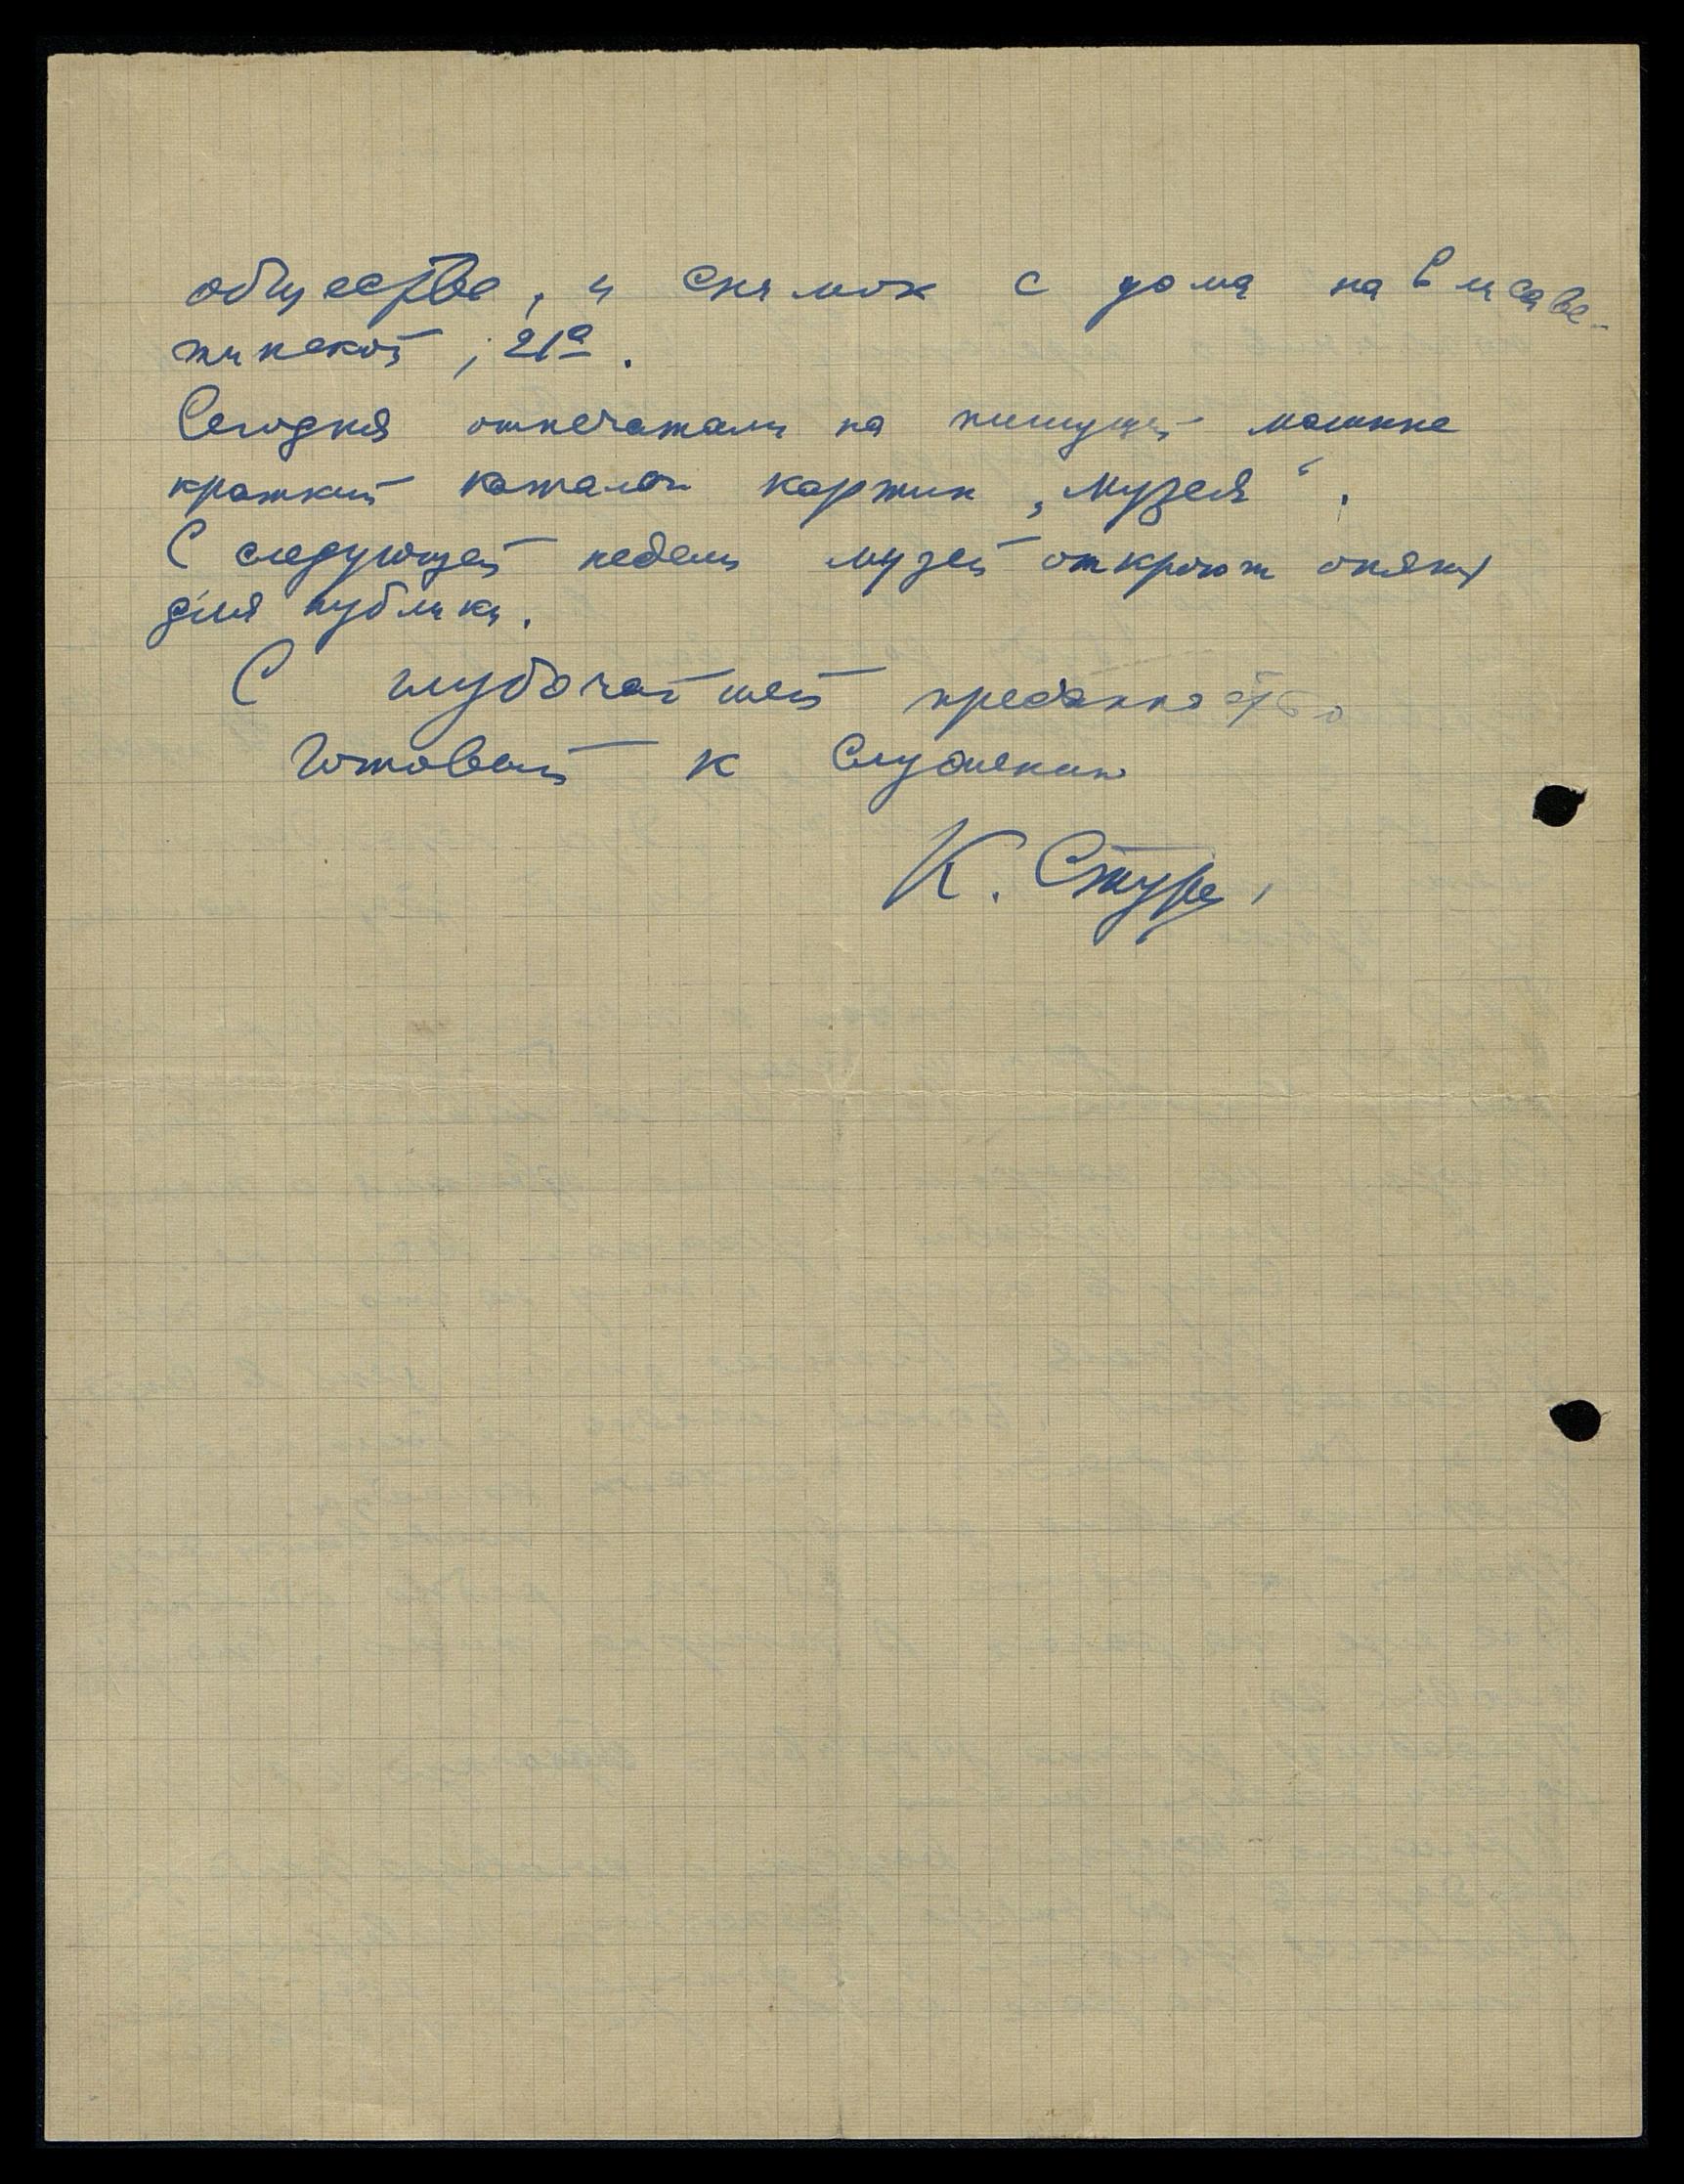 обществе, и снимок с дома на Елисаве-
тинской, 21а.
Сегодня отпечатали на пишущей машинке
краткий каталог картин „Музея“.
С следующей недели музей откроют опять
для публики.
С глубочайшей преданностью
Готовый к служению
К. Стуре,